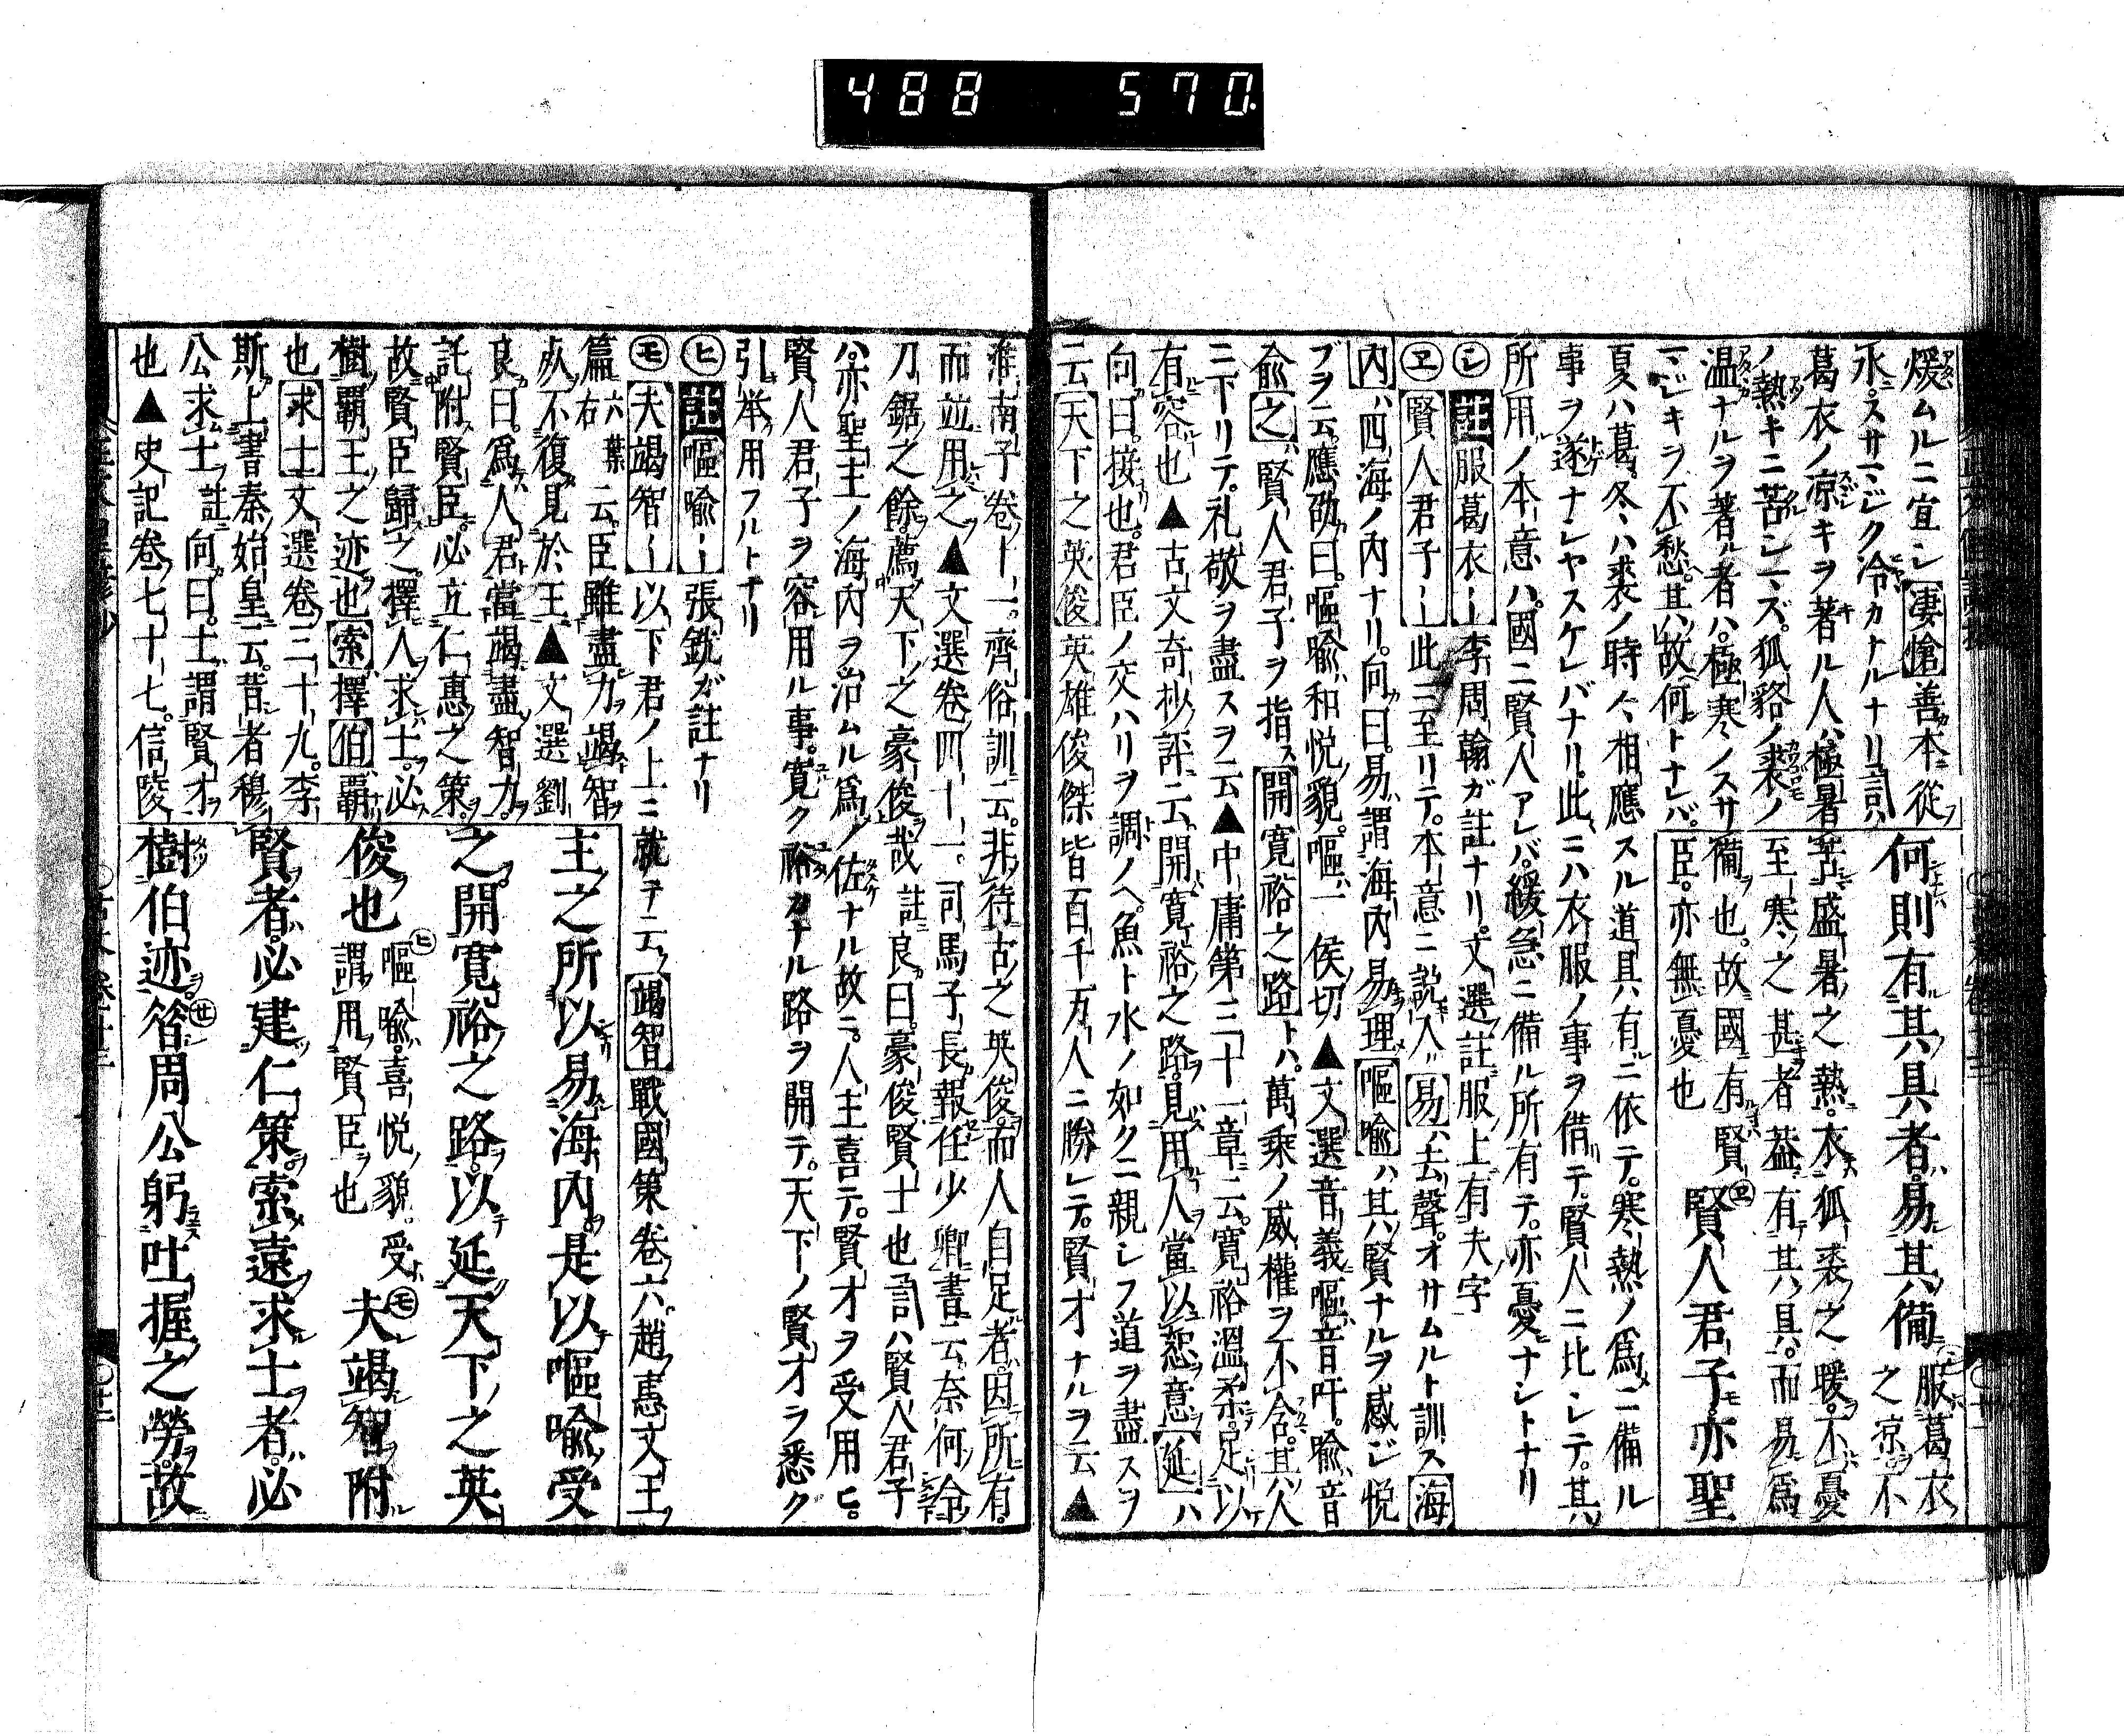 488 570
煖ムルニ宜シ凄愴善本從
氷スサマジク冷カナルナリ言ハ
葛衣ノ凉キヲ著ル人ハ極暑
ノ熱キニ苦シマズ狐貉ノ裘ノ
温ナルヲ著ル者ハ極寒ノスサ
マジキヲ不愁其故何トナレバ
何則有其具者易其備服葛衣之凉不
苦盛暑之熱衣狐裘之暖不憂
至寒之甚者葢有其具而易爲
備也故國有賢臣亦無憂也
賢人君子亦聖
夏ハ葛冬ハ裘ノ時々相應スル道具ハ有ニ依テ寒熱ノ爲ニ備ル
事ヲ遂ナシヤスケレバナリ此ニハ衣服ノ事ヲ借テ賢人ニ比シテ其
所用ノ本意ハ國ニ賢人アレバ緩急ニ備ル所有テ亦憂ナシトナリ
シ註服葛衣〡李周翰ガ註ナリ文選註服上有夫字
ヱ賢人君子〡此ニ至リテ本意ニ説入易ハ去聲オサムルト訓ス海
内ハ四海ノ内ナリ向曰易謂海内易理嘔喩ハ其賢ナルヲ感ジ悦
ブヲ云應劭曰嘔喩和悦貌嘔一侯切▲文選音義嘔音吁喩音
兪之賢人君子ヲ指ス開寛裕之路トハ萬乘ノ威權ヲ不含其人
ニ下リテ礼敬ヲ盡スヲ云▲中庸第三十一章ニ云寛裕溫柔足以
有容也▲古文奇抄評ニ云開寛裕之路見用人當以恕意延ハ
向曰接也君臣ノ交ハリヲ調ノヘ魚ト水ノ如クニ親シフ道ヲ盡スヲ
云天下之英俊英雄俊傑皆百千万人ニ勝レテ賢才ナルヲ云▲
淮南子卷十一齊俗訓云非待古之英俊而人自足者因所有
而並用之▲文選卷四十一司馬子長報任少卿書云奈何令
刀鋸之餘薦天下之豪俊哉註良曰豪俊賢士也言ハ賢人君子
ハ亦聖主ノ海内ヲ治ムル爲ノ佐ナル故ニ人主喜テ賢才ヲ受用ヒ
賢人君子ヲ容用ル事寛ク裕カナル路ヲ開テ天下ノ賢才ヲ悉ク
引挙用フルトナリ
ヒ註嘔喩〡張銑ガ註ナリ
モ夫竭智〡以下君ノ上ニ就ヲ云竭智戰國策卷六趙惠文王
篇六葉右云臣雖盡力竭智
死不復見於王▲文選劉
良曰爲人君當竭盡智力
託附賢臣必立仁惠之策
故賢臣歸之擇人求士必
樹覇王之迹也索擇伯覇
也求士文選卷三十九李
斯上書秦始皇云昔者穆
公求士註向曰士謂賢才
也▲史記卷七十七信陵
主之所以易海内是以嘔喩受
之開寛裕之路以延天下之英
俊也嘔喩喜悦貌受謂用賢臣也夫竭智附
賢者必建仁策索遠求士者必
樹伯迹㊆周公躬吐握之勞故